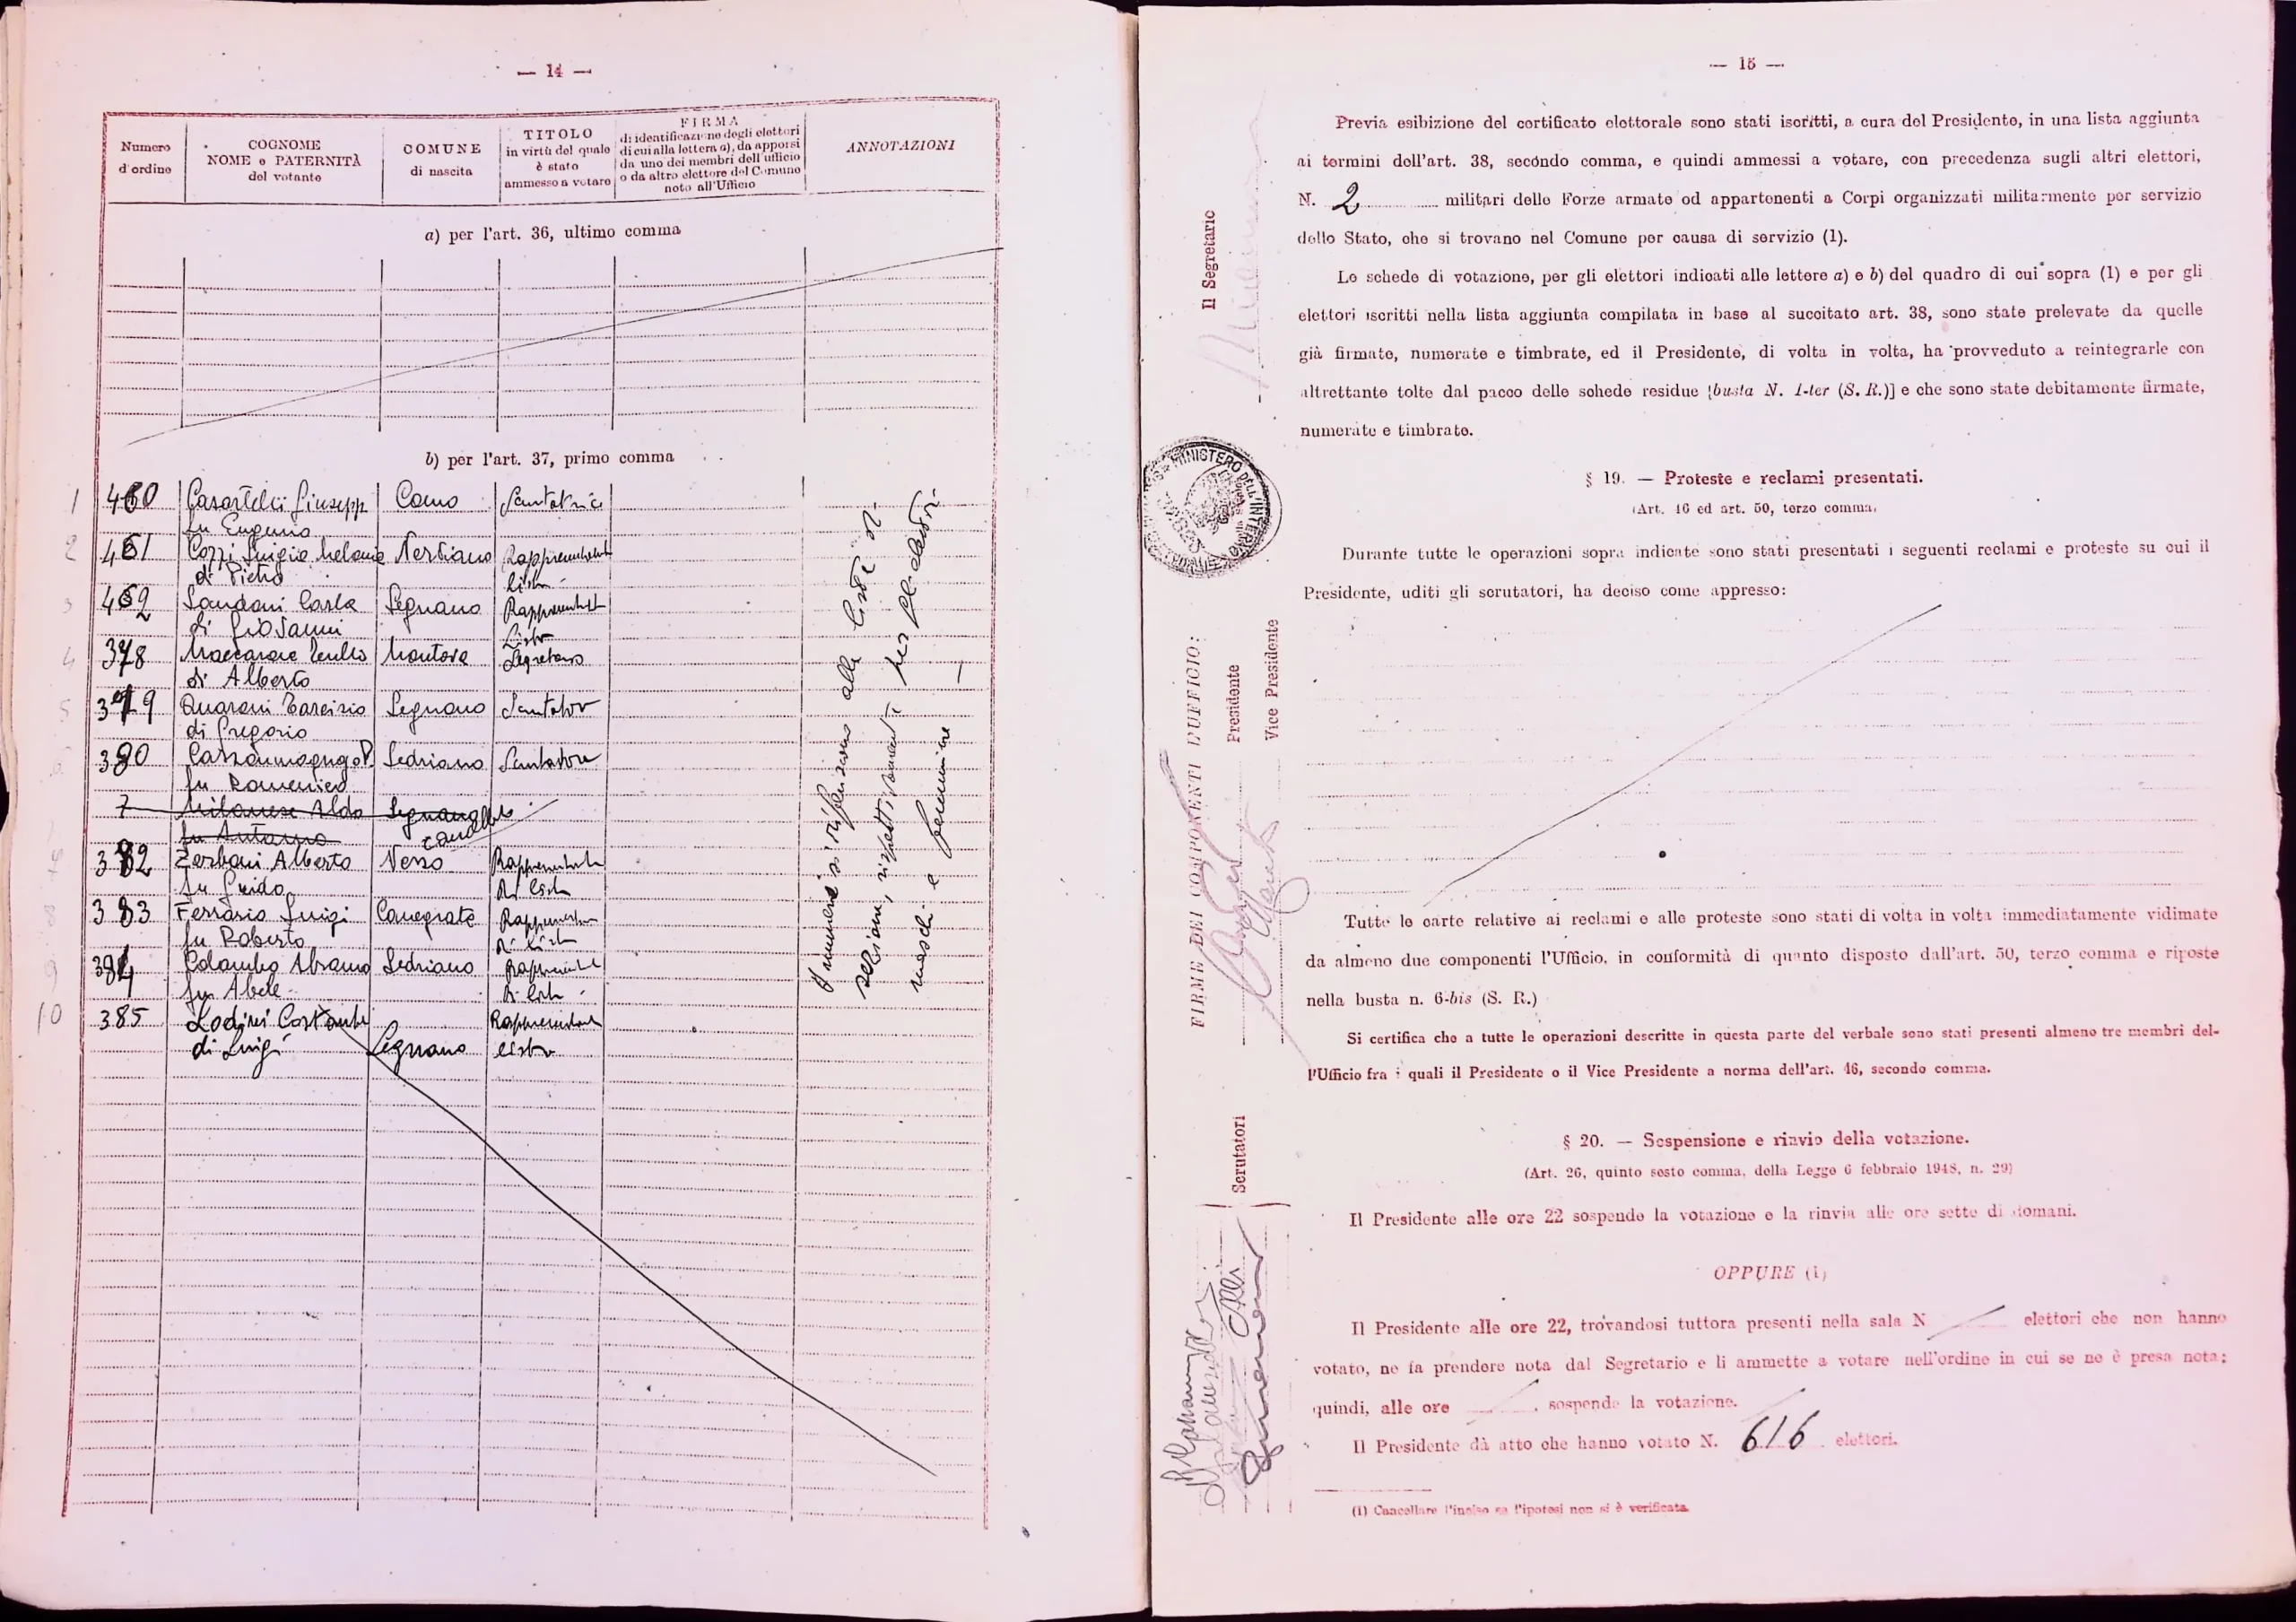 — 14 —
Numero d'ordine
COGNOME NOME e PATERNITÀ del votante
COMUNE di nascita
TITOLO in virtù del quale è stato ammesso a votare
FIRMA di identificazione degli elettori di cui alla lettera a), da apporsi da uno dei membri dell'ufficio o da altro elettore del Comune noto all'Ufficio
ANNOTAZIONI
a) per l'art. 36, ultimo comma
b) per l'art. 37, primo comma
1 460 Casartelli Giusepp Como Scrutatrice
fu Eugenio
2 461 Cozzi Luigia Nerviano Rappresentante
di Pietro lista
3 462 Landoni Carla Legnano Rappresentante
di Giovanni Lista
4 378 Tullio Mantova Segretario
di Alberto
5 379 Tarcisio Legnano Scrutatore
di Gregorio
6 380 Sedriano Scrutatore
fu Domenico
7 Milanese Aldo Legnano
fu Antonio
382 Zerboni Alberto Nesso Rappresentante
fu Guido di lista
8 383 Ferrario Luigi Canegrate Rappresentante
fu Roberto di lista
9 384 Colombo Abramo Sedriano Rappresentante
fu Abele di lista
10 385 Lodini Costante Rappresentante
di Luigi Legnano lista
I numeri si riferiscono alle liste di
sezione, rispettivamente per elettori
maschi e femmine —
— 15 —
Previa esibizione del certificato elettorale sono stati iscritti, a cura del Presidente, in una lista aggiunta
ai termini dell'art. 38, secondo comma, e quindi ammessi a votare, con precedenza sugli altri elettori,
N. 2 militari delle Forze armate od appartenenti a Corpi organizzati militarmente per servizio
dello Stato, che si trovano nel Comune per causa di servizio (1).
Le schede di votazione, per gli elettori indicati alle lettere a) e b) del quadro di cui sopra (1) e per gli
elettori iscritti nella lista aggiunta compilata in base al succitato art. 38, sono state prelevate da quelle
già firmate, numerate e timbrate, ed il Presidente, di volta in volta, ha provveduto a reintegrarle con
altrettante tolte dal pacco delle schede residue [busta N. 1-ter (S. R.)] e che sono state debitamente firmate,
numerate e timbrate.
§ 19. — Proteste e reclami presentati.
(Art. 46 ed art. 50, terzo comma)
Durante tutte le operazioni sopra indicate sono stati presentati i seguenti reclami e proteste su cui il
Presidente, uditi gli scrutatori, ha deciso come appresso:
Tutte le carte relative ai reclami e alle proteste sono stati di volta in volta immediatamente vidimate
da almeno due componenti l'Ufficio, in conformità di quanto disposto dall'art. 50, terzo comma e riposte
nella busta n. 6-bis (S. R.)
Si certifica che a tutte le operazioni descritte in questa parte del verbale sono stati presenti almeno tre membri del-
l'Ufficio fra i quali il Presidente o il Vice Presidente a norma dell'art. 46, secondo comma.
§ 20. — Sospensione e rinvio della votazione.
(Art. 26, quinto sesto comma, della Legge 6 febbraio 1948, n. 29)
Il Presidente alle ore 22 sospende la votazione e la rinvia alle ore sette di domani.
OPPURE (1)
Il Presidente alle ore 22, trovandosi tuttora presenti nella sala N. elettori che non hanno
votato, ne fa prendere nota dal Segretario e li ammette a votare nell'ordine in cui se ne è presa nota;
quindi, alle ore sospende la votazione.
Il Presidente dà atto che hanno votato N. 616 elettori.
(1) Cancellare l'inciso se l'ipotesi non si è verificata.
FIRME DEI COMPONENTI L'UFFICIO:
Il Segretario
Presidente
Vice Presidente
Scrutatori
MINISTERO DELL'INTERNO